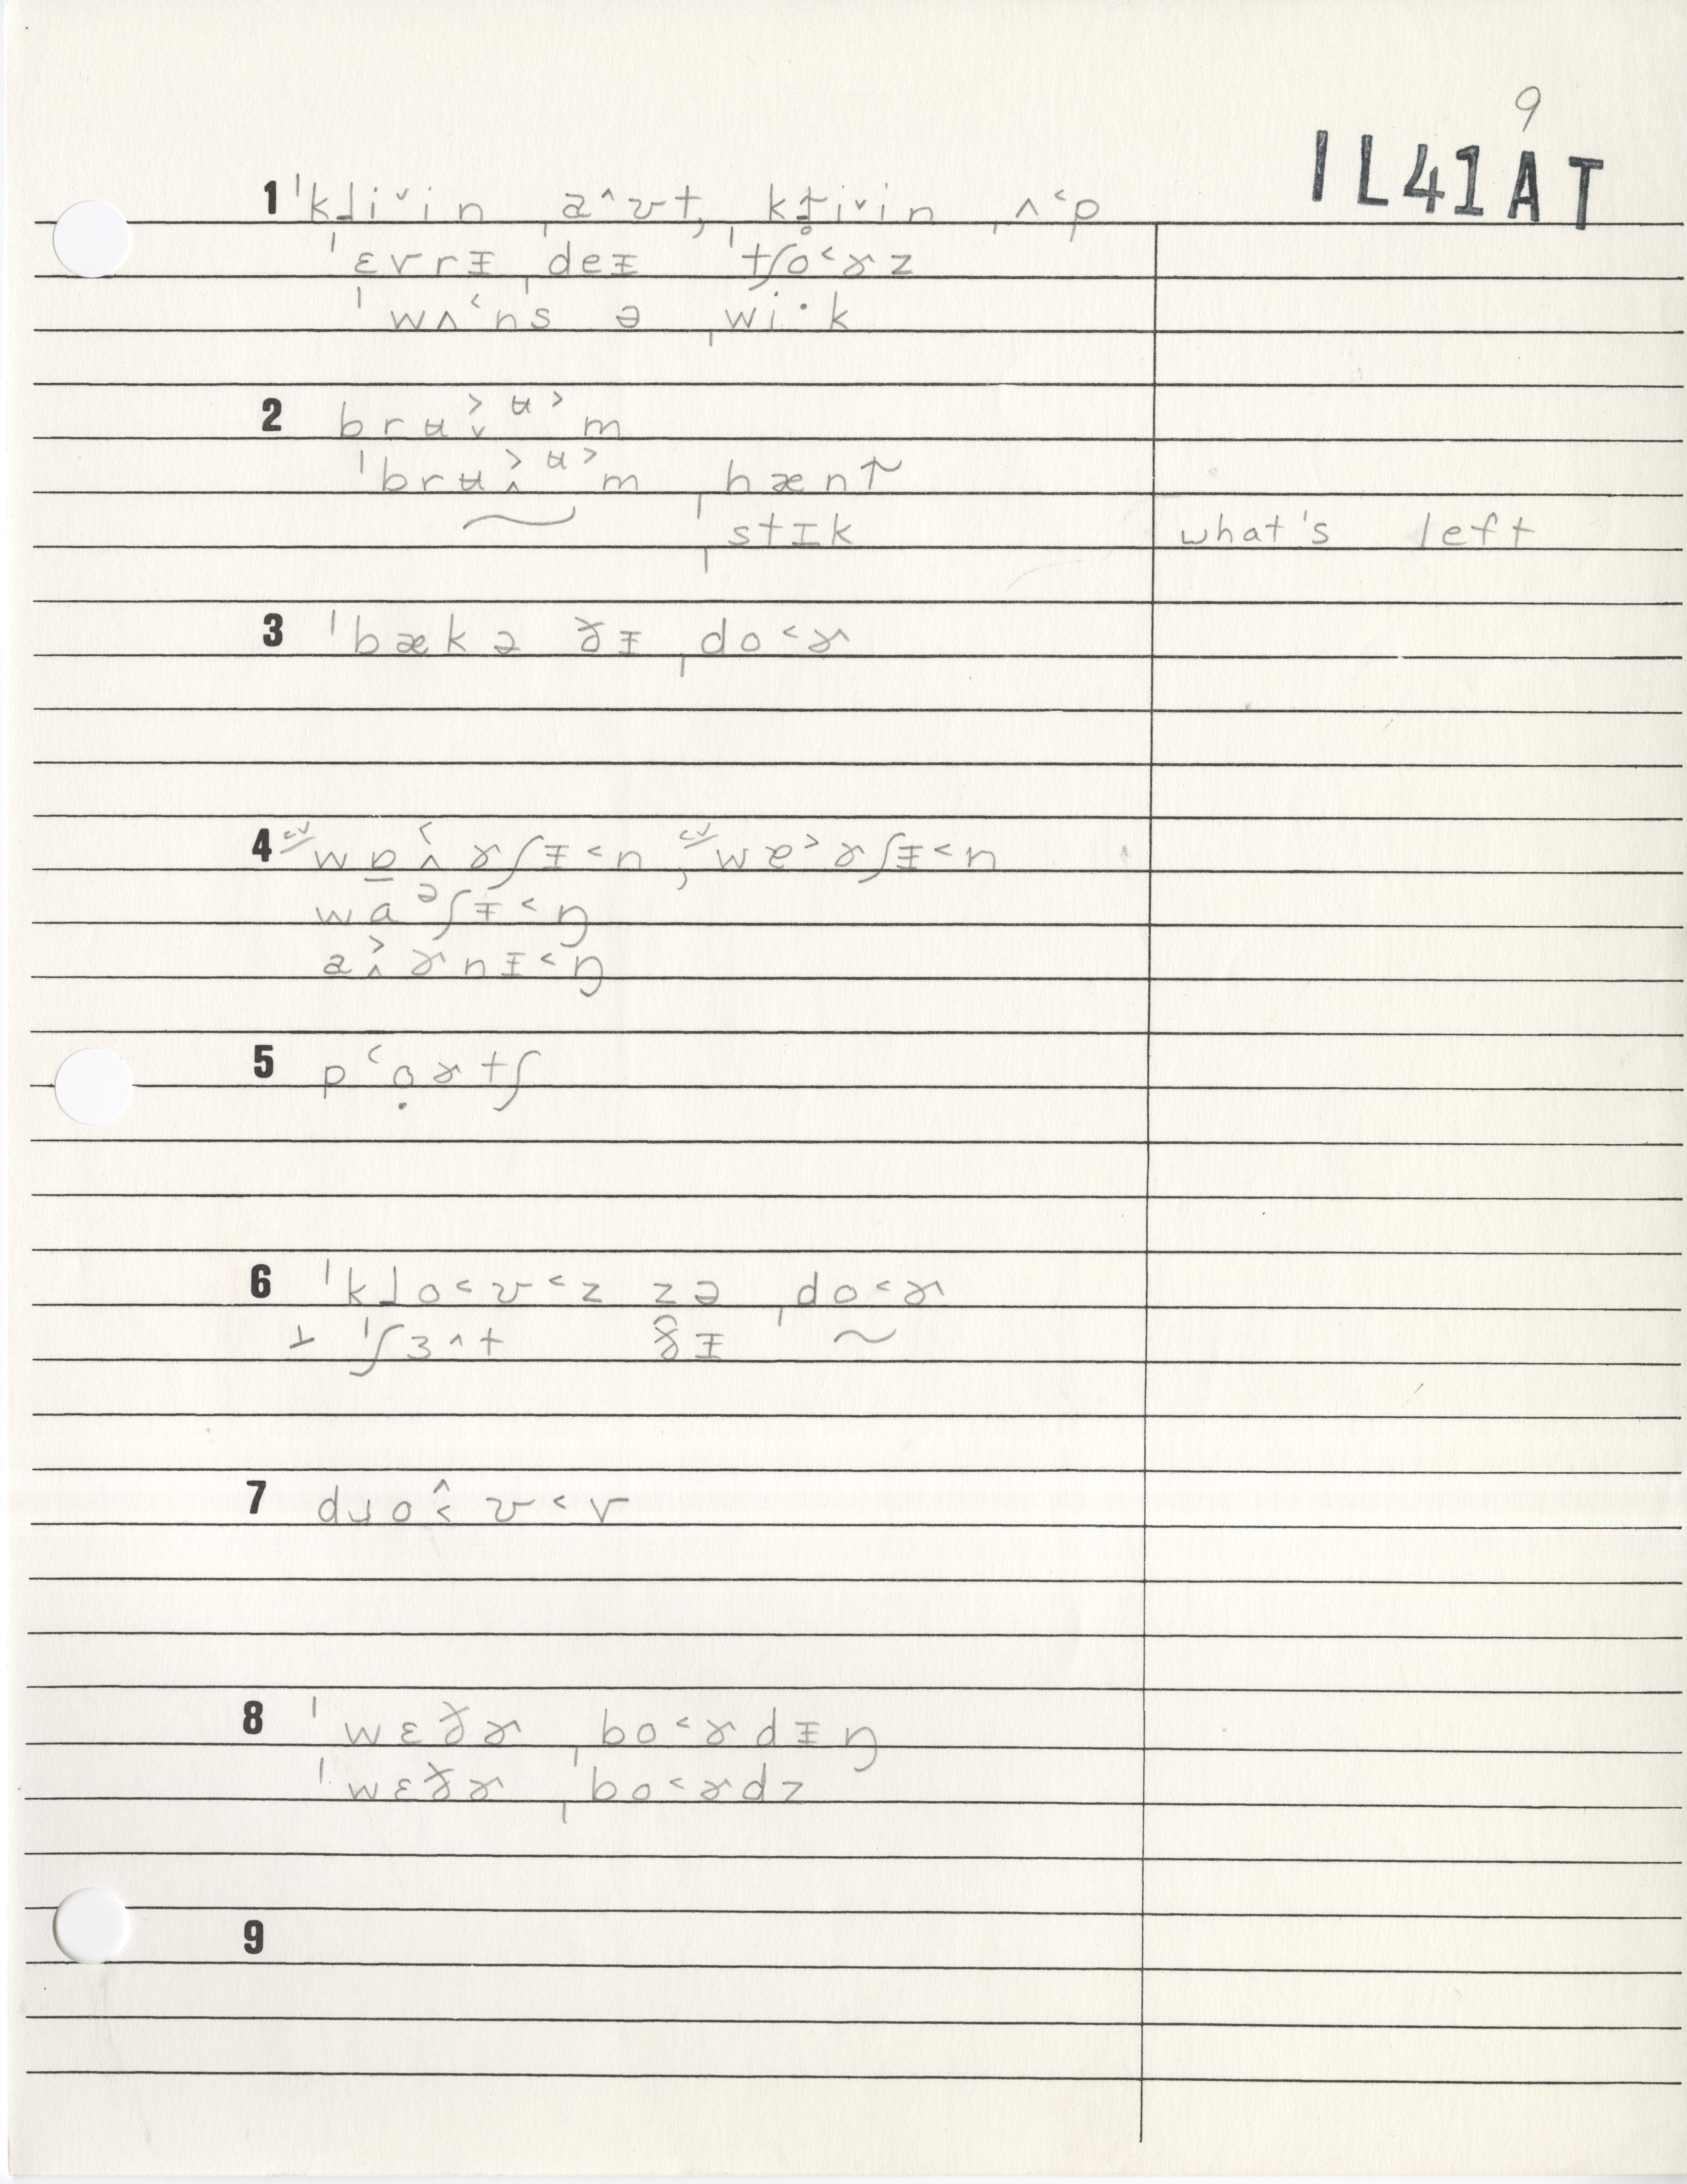 9
IL41AT
1 ˈkɹ̩iˇin ˌa^ʊt, kɫiˇin ˌʌ˂p
ˈɛvrɪ ˌdeɪ ˈtʃo˂ɚz
ˈwʌ˂ns ə ˌwi·k
2 brʉ˃ᵾ˃m
ˈbrʉ˃ᵾ˃m ˌhænt
ˌstɪk what's left
3 ˈbækə ðɨ ˌdo˂ɚ
4 wɒ˂ɚʃɨ˂n, wɐ˃ɚʃɨ˂n
waᵊʃɨ˂ŋ
a˃ɚnɨ˂ŋ
5 pʿọɚtʃ
6 ˈklo˂ʊ˂z zə ˌdo˂ɚ
ˈʃɜ^t ðɨ ~
7 dɹo˂ʊ˂v
8 ˈwɛðɚ ˌbo˂ɚdɨŋ
ˈwɛðɚ ˌbo˂ɚdz
9